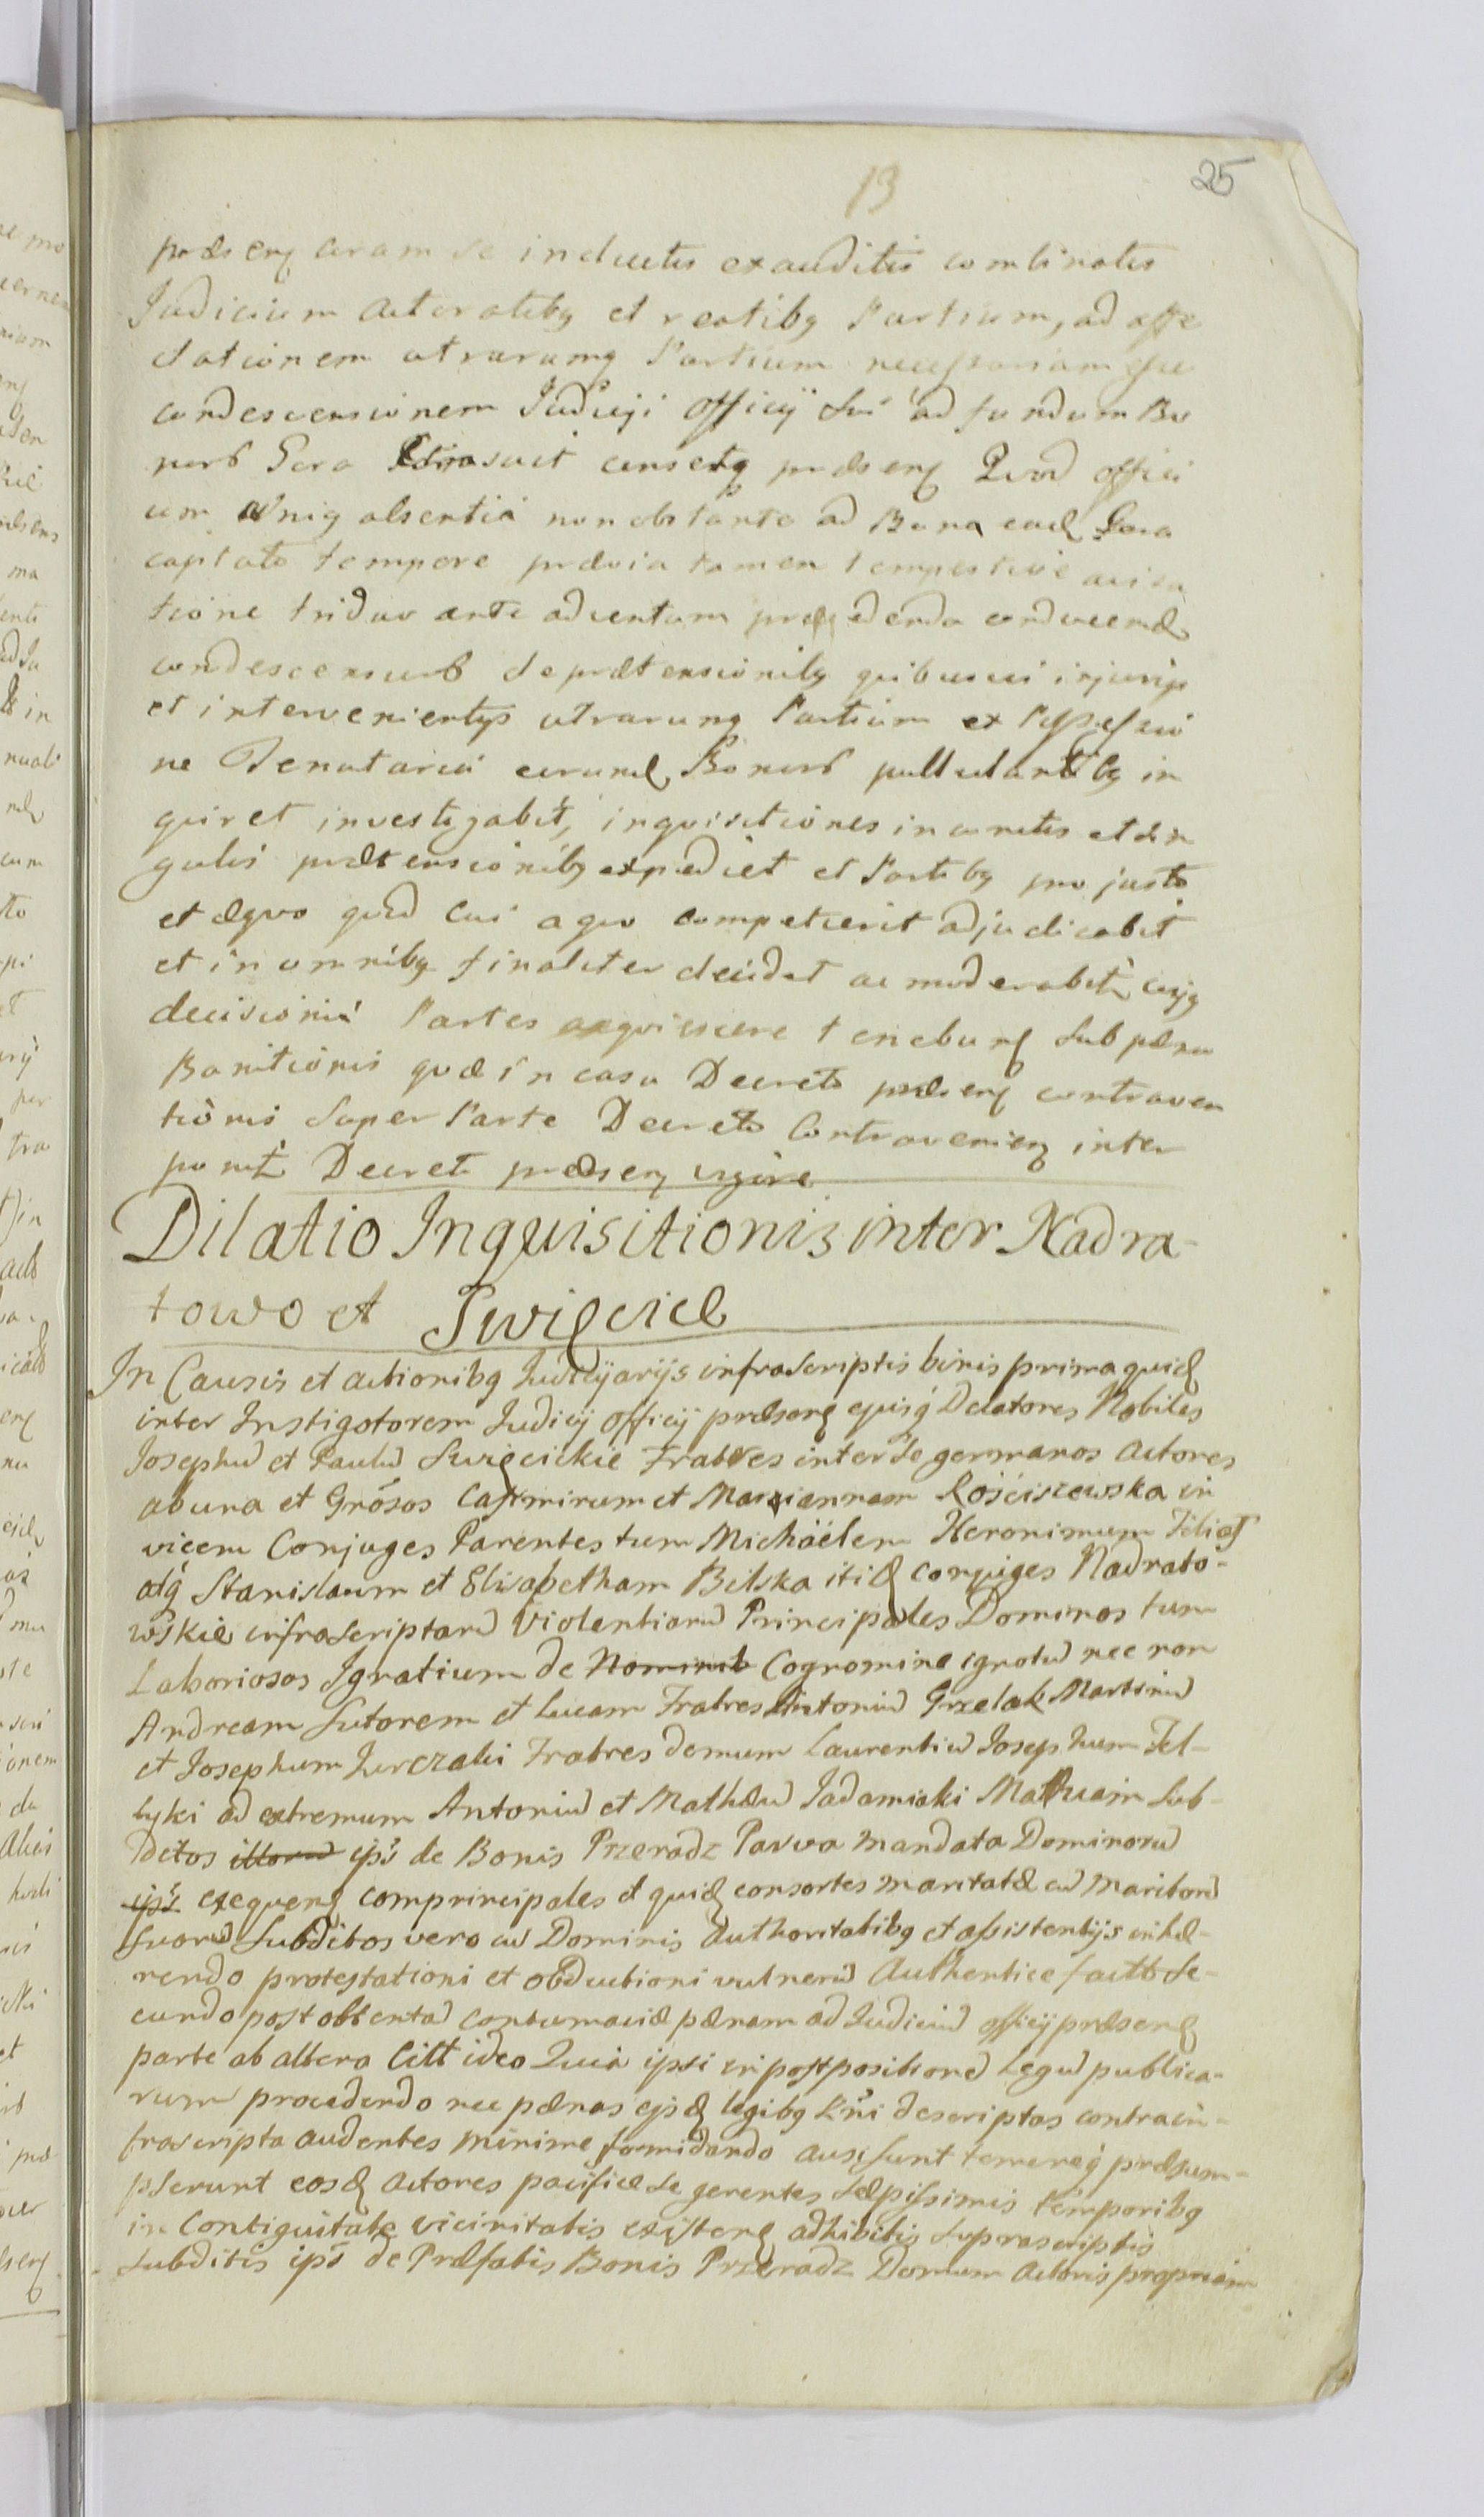 13
25
præsenq coram se inductis exauditis combinatis
Judicium Actoratibq et reatibq Partium, ad affe
ctationem utrarumq Partium necessariam esse
condescensionem Judicÿ Officÿ Sui ad fundum Bo
norb Gora censetq præsenq Quod offici
um unig absentia non obstante ad Bona eadq Gora
captato tempore prævia tamen tempestive avisa
tione triduo ante adventum præcedenda conducend
condescensurb de prætensionibq quibusvis injurijs
et intervenientijs utrarumq Partium ex Possessio
ne Tenutaria eorundq Bonorb pullulantibq in
quiret investigabit, inquisitiones in cunctis et sin
gulis prætensionibq expediet et Partibq pro justo
et æquo quid cui a quo competierit adjudicabit
et in omnibq finaliter decidet ac moderabit, cujq
decisioni Partes acquiescere tenebunq sub pæna
Banitionis quæ in casu Decreto præsenq contraven
tionis super Parte Decreto Contravenienq inter
ponit Decreti præsenq vigore
Dilatio Inquisitionis inter Nadra-
towo et Swięcice
In Causis et actionibq Judicÿarÿs infrascriptis binis prima quidq
inter Instigatorem Judicÿ Officÿ præsenq ejusq Delatores Nobiles
Josephu et Paulu Swięcickie Fratres inter se germanos Actores
ab una et Grosos Casimirum et Mariannam Rościszewska in
vicem Conjuges Parentes tum Michäelem Heronimum Filios
atq Stanislaum et Elisabetham Bilska itidq conjuges Nadrato-
wskie infrascriptaru Violentiaru Principales Dominos tum
Laboriosos Ignatium de Nominib Cognomine ignotu nec non
Andream Sutorem et Lucam Fratres Antoniu Grzelak Martinu
et Josephum Jurczaki Fratres demum Laurentiu Josephum Fel-
tyki ad extremum Antoniu et Mathæu Jadamiaki Sub-
ditos illoru ips de Bonis Przeradz Parva mandata Dominoru
ips exequenq comprincipales et quidq consortes maritatæ cu Maritoru
Suoru Subditos vero cu Dominis Authoritatibq et assistentijs inhæ-
rendo protestationi et obductioni vulneru Authentice factb se-
cundo post obtenta contumaciæ pænam ad Judiciu officÿ præsenq
parte ab altera Citt ideo Quia ipsi in postpositione Legu publica-
rum procedendo nec pænas ejsdq legibq Rni descriptas contra in-
frascripta audentes minime formidando ausi sunt temereq præsum-
pserunt eosdq Actores pacifice se gerentes sæpissimis temporibq
in Contiguitate vicinitatis existenq adhibitis suprascriptis
subditis ips de Præfatis Bonis Przeradz Domum Actoris propriam